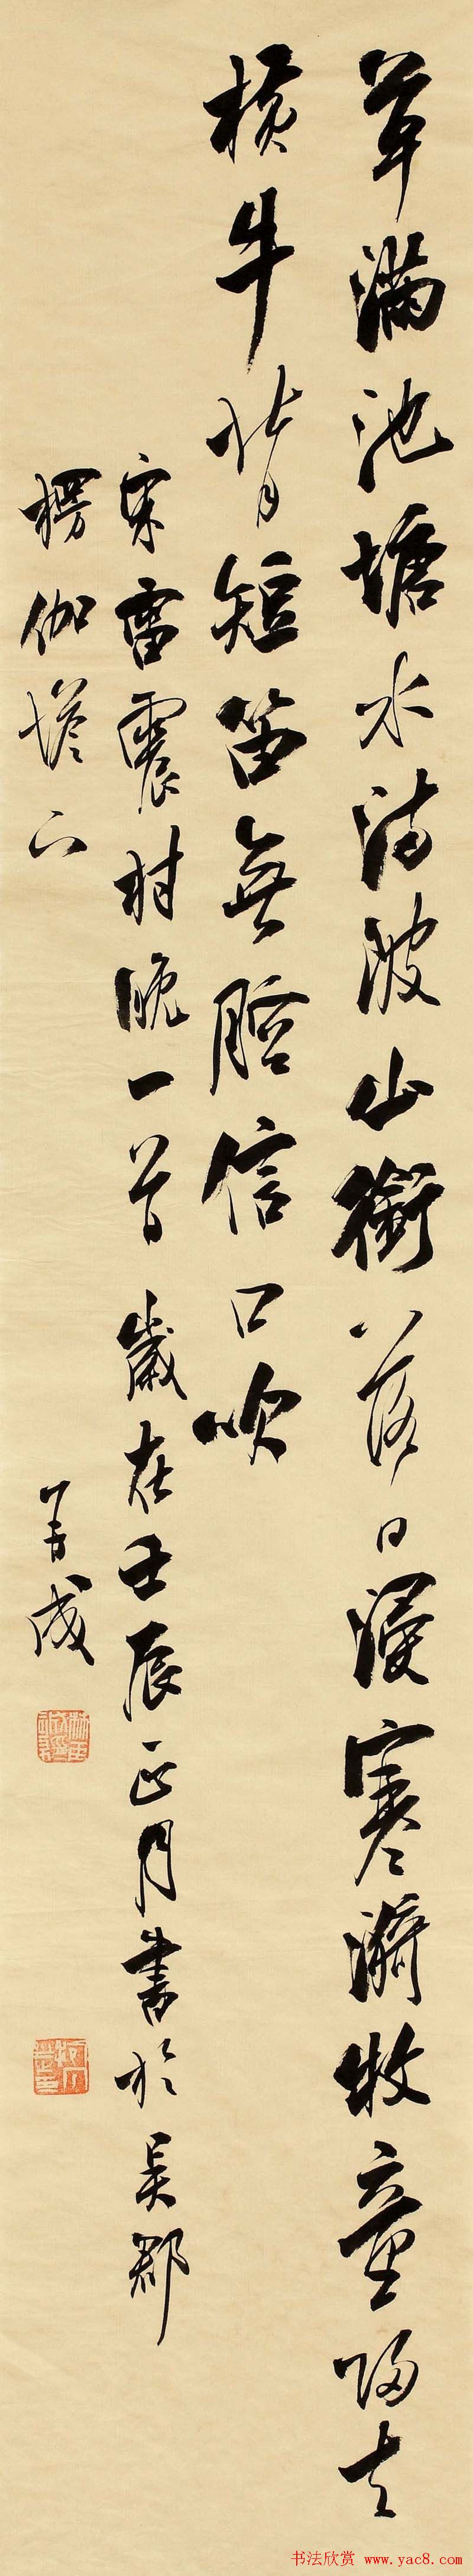 草滿池塘水滿陂山銜落日浸寒漪牧童歸去
橫牛背短笛無腔信口吹
宋雷震村晚一首歲在壬辰正月書於吳郡
楞伽塔下
書法欣賞 www.yac8.com